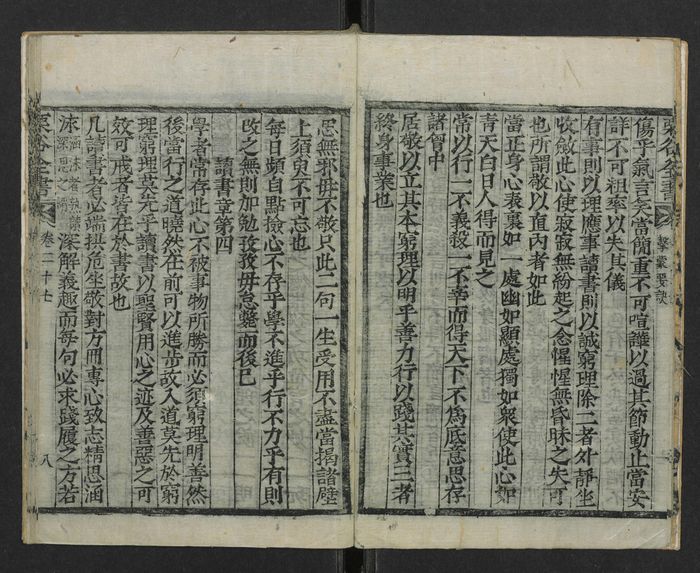 栗谷全書
擊蒙要訣
傷乎氣言笑當簡重不可喧譁以過其節動止當安
詳不可粗率以失其儀
有事則以理應事讀書則以誠窮理除二者外靜坐
收斂此心使寂寂無紛起之念惺惺無昏昧之失可
也所謂敬以直內者如此
當正身心表裏如一處幽如顯處獨如衆使此心如
靑天白日人得而見之
常以行一不義殺一不辜而得天下不爲底意思存
諸胷中
居敬以立其本窮理以明乎善力行以踐其實三者
終身事業也
思無邪毋不敬只此二句一生受用不盡當揭諸壁
上須臾不可忘也
每日頻自點檢心不存乎學不進乎行不力乎有則
改之無則加勉孜孜毋怠斃而後已
讀書章第四
學者常存此心不被事物所勝而必須窮理明善然
後當行之道曉然在前可以進步故入道莫先於窮
理窮理莫先乎讀書以聖賢用心之迹及善惡之可
效可戒者皆在於書故也
凡讀書者必端拱危坐敬對方冊專心致志精思涵
泳涵泳者熟讀深思之謂深解義趣而每句必求踐履之方若
栗谷全書
卷二十七
八